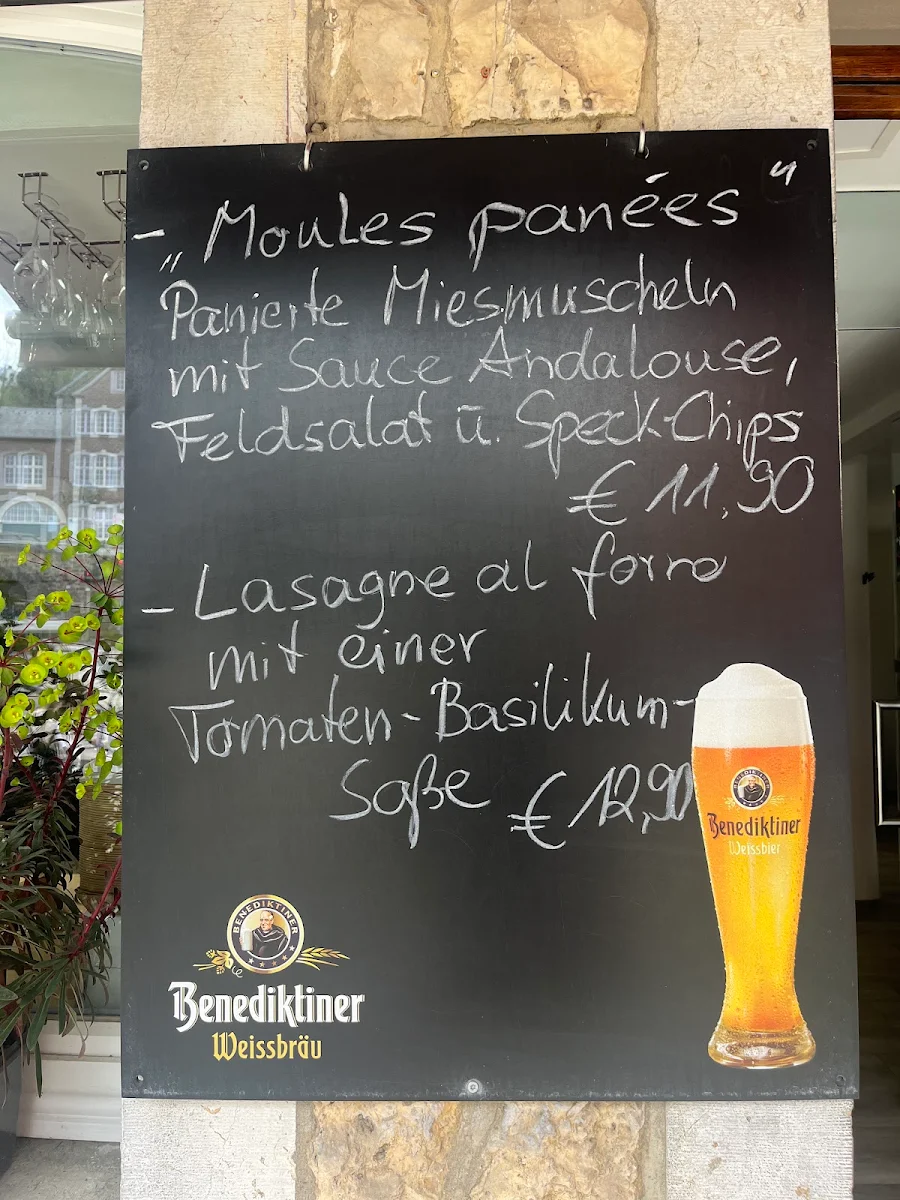 - „Moules panées"
Panierte Miesmuscheln
mit Sauce Andalouse,
Feldsalat u. Speck-Chips
€ 11,90
- Lasagne al forno
mit einer
Tomaten-Basilikum-
Soße € 12,90
BENEDIKTINER
Benediktiner
Weissbier
BENEDIKTINER
Benediktiner
Weissbräu